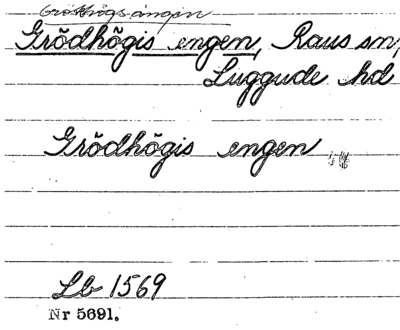 Grödhögis engen, Raus sn,
Luggude hd
Grödhögis engen
Lb 1569
Nr 5691.